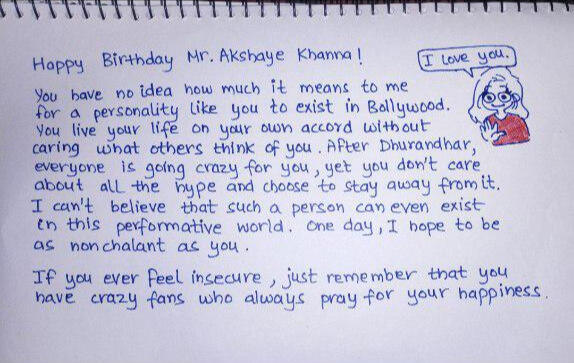 Happy Birthday Mr. Akshaye Khanna!
I love you.
You have no idea how much it means to me
for a personality like you to exist in Bollywood.
You live your life on your own accord without
caring what others think of you. After Dhurandhar,
everyone is going crazy for you, yet you don't care
about all the hype and choose to stay away from it.
I can't believe that such a person can even exist
in this performative world. One day, I hope to be
as nonchalant as you.
If you ever feel insecure, just remember that you
have crazy fans who always pray for your happiness.